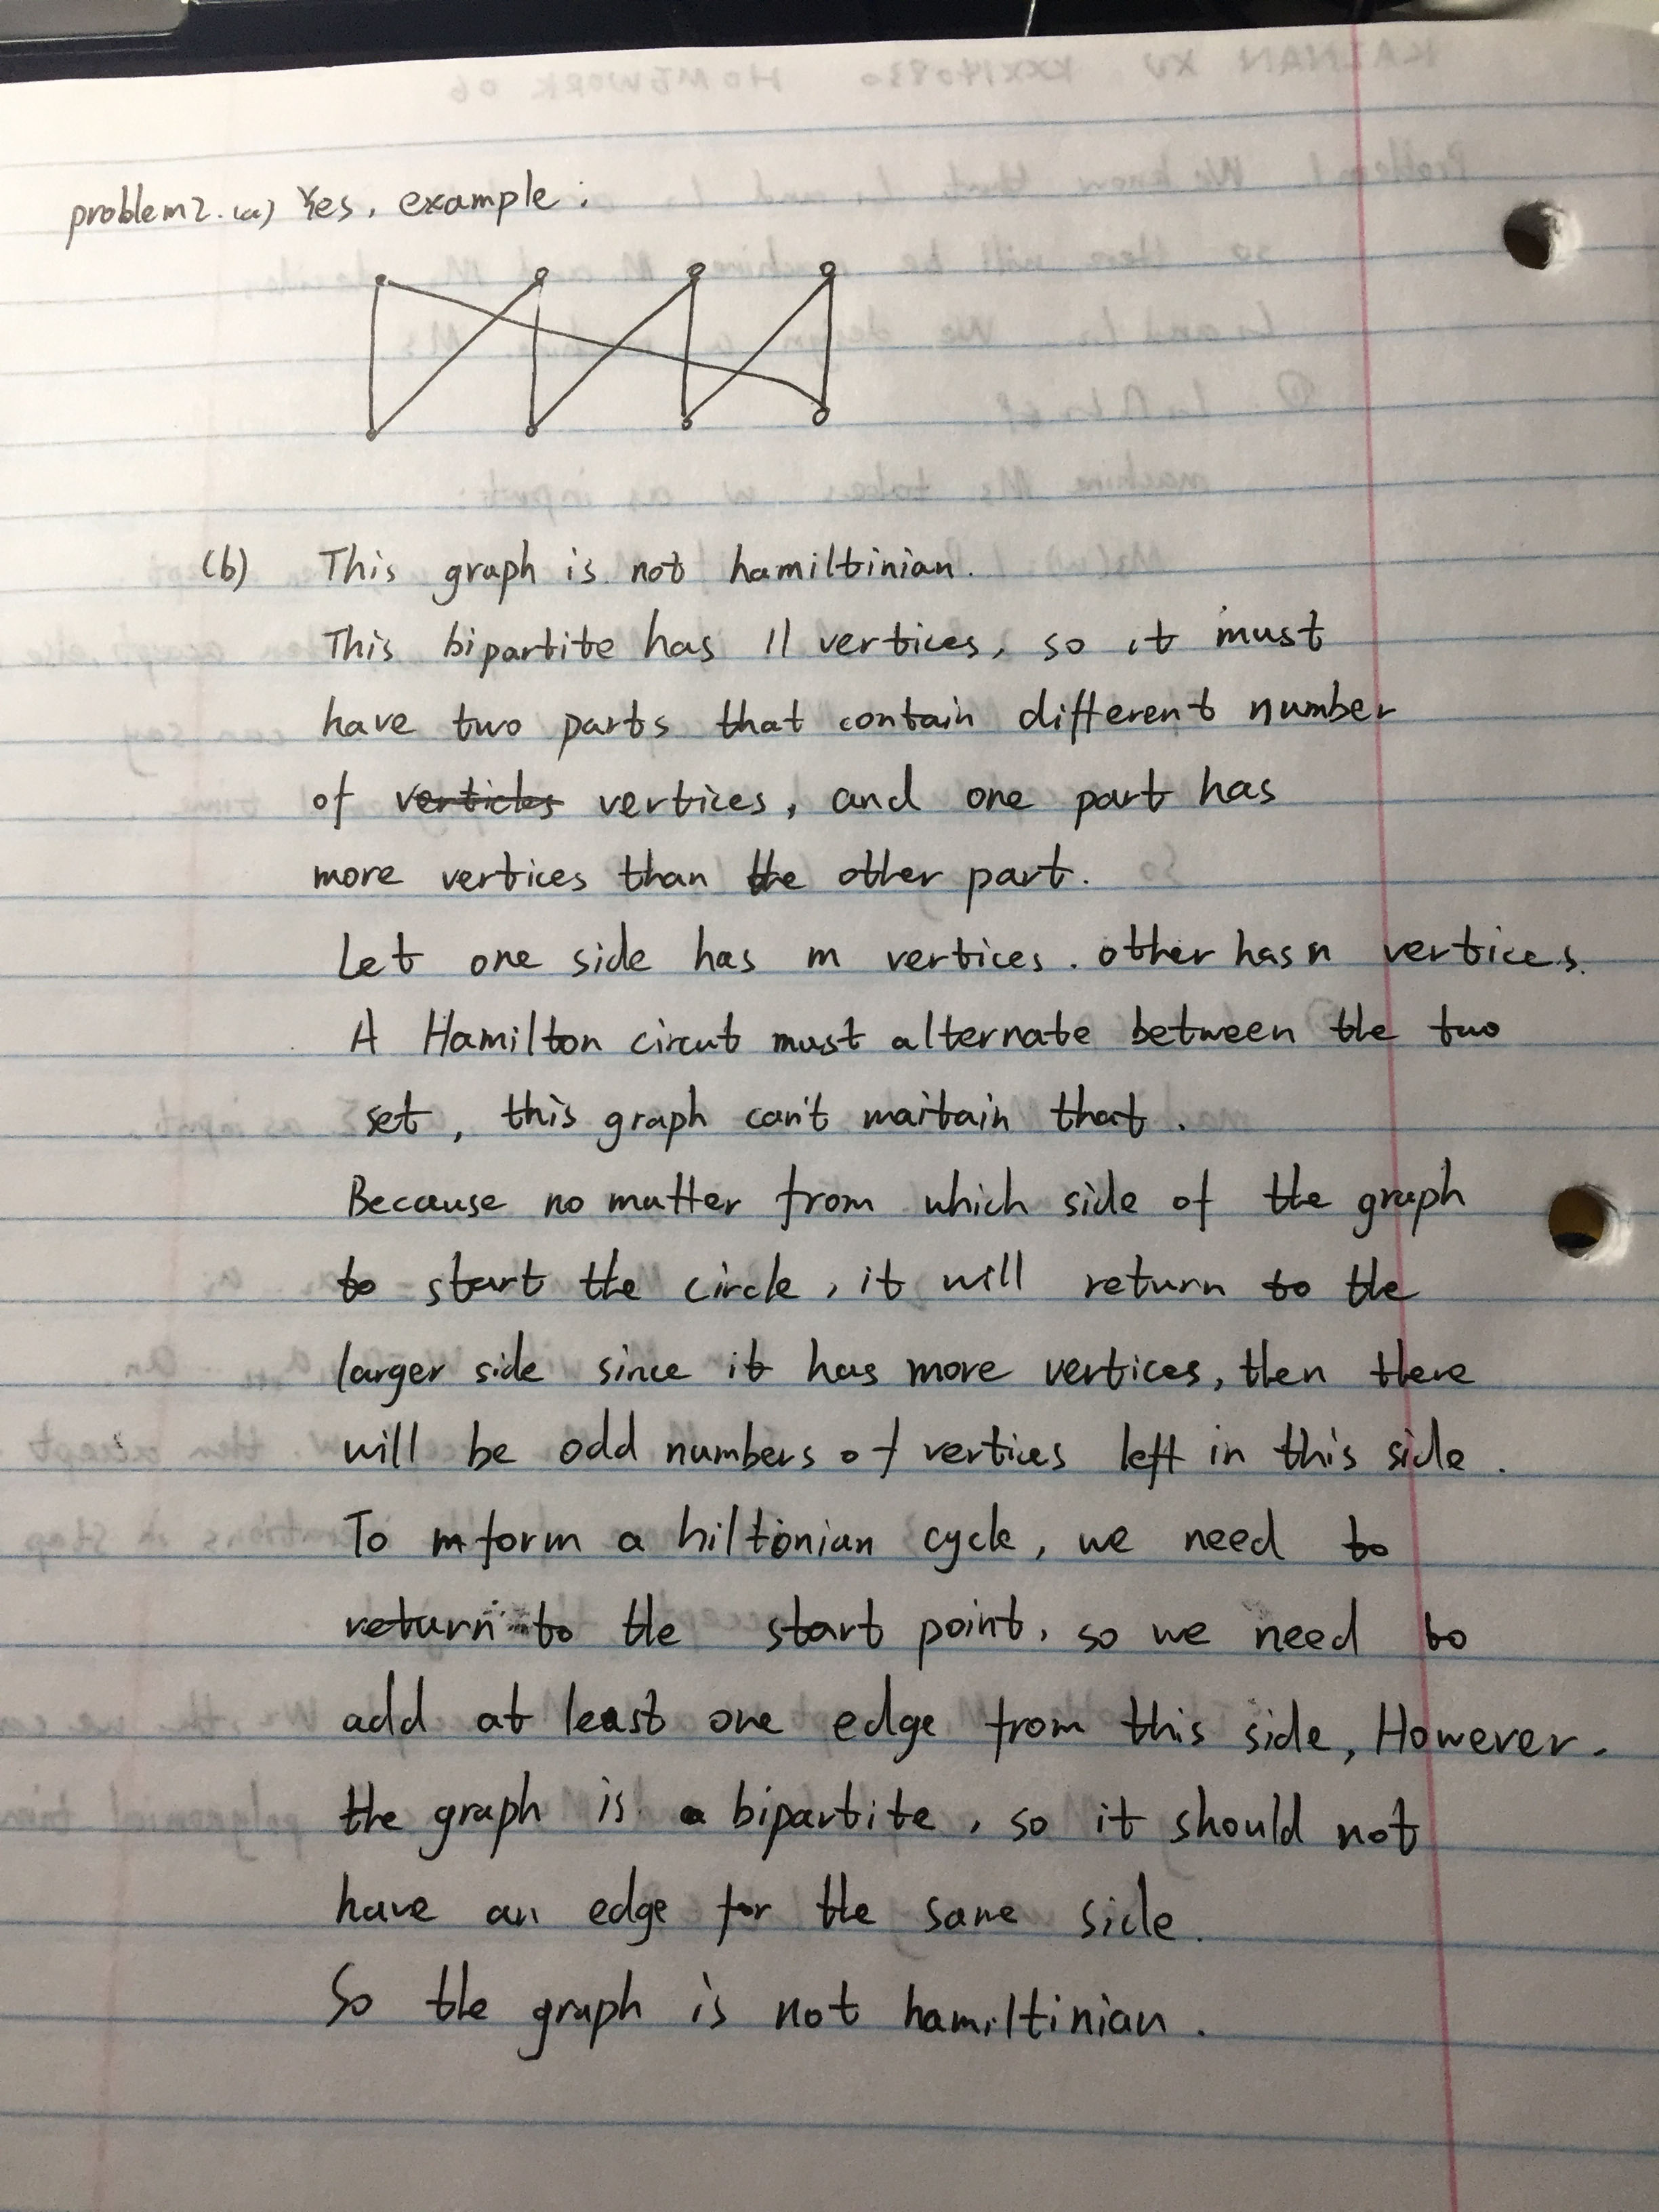 KAINAN XU KXX140830 HOMEWORK 06
problem2. (a) Yes, example:
(b) This graph is not hamiltinian.
This bipartite has 11 vertices, so it must
have two parts that contain different number
of verticles vertices, and one part has
more vertices than the other part.
Let one side has m vertices. other has n vertices.
A Hamilton circut must alternate between the two
set, this graph can't maitain that.
Because no matter from which side of the graph
to start the circle, it will return to the
larger side since it has more vertices, then there
will be odd numbers of vertices left in this side.
To m form a hiltonian cycle, we need to
return to the start point, so we need to
add at least one edge from this side, However.
the graph is a bipartite, so it should not
have an edge for the same side.
So the graph is not hamiltinian.